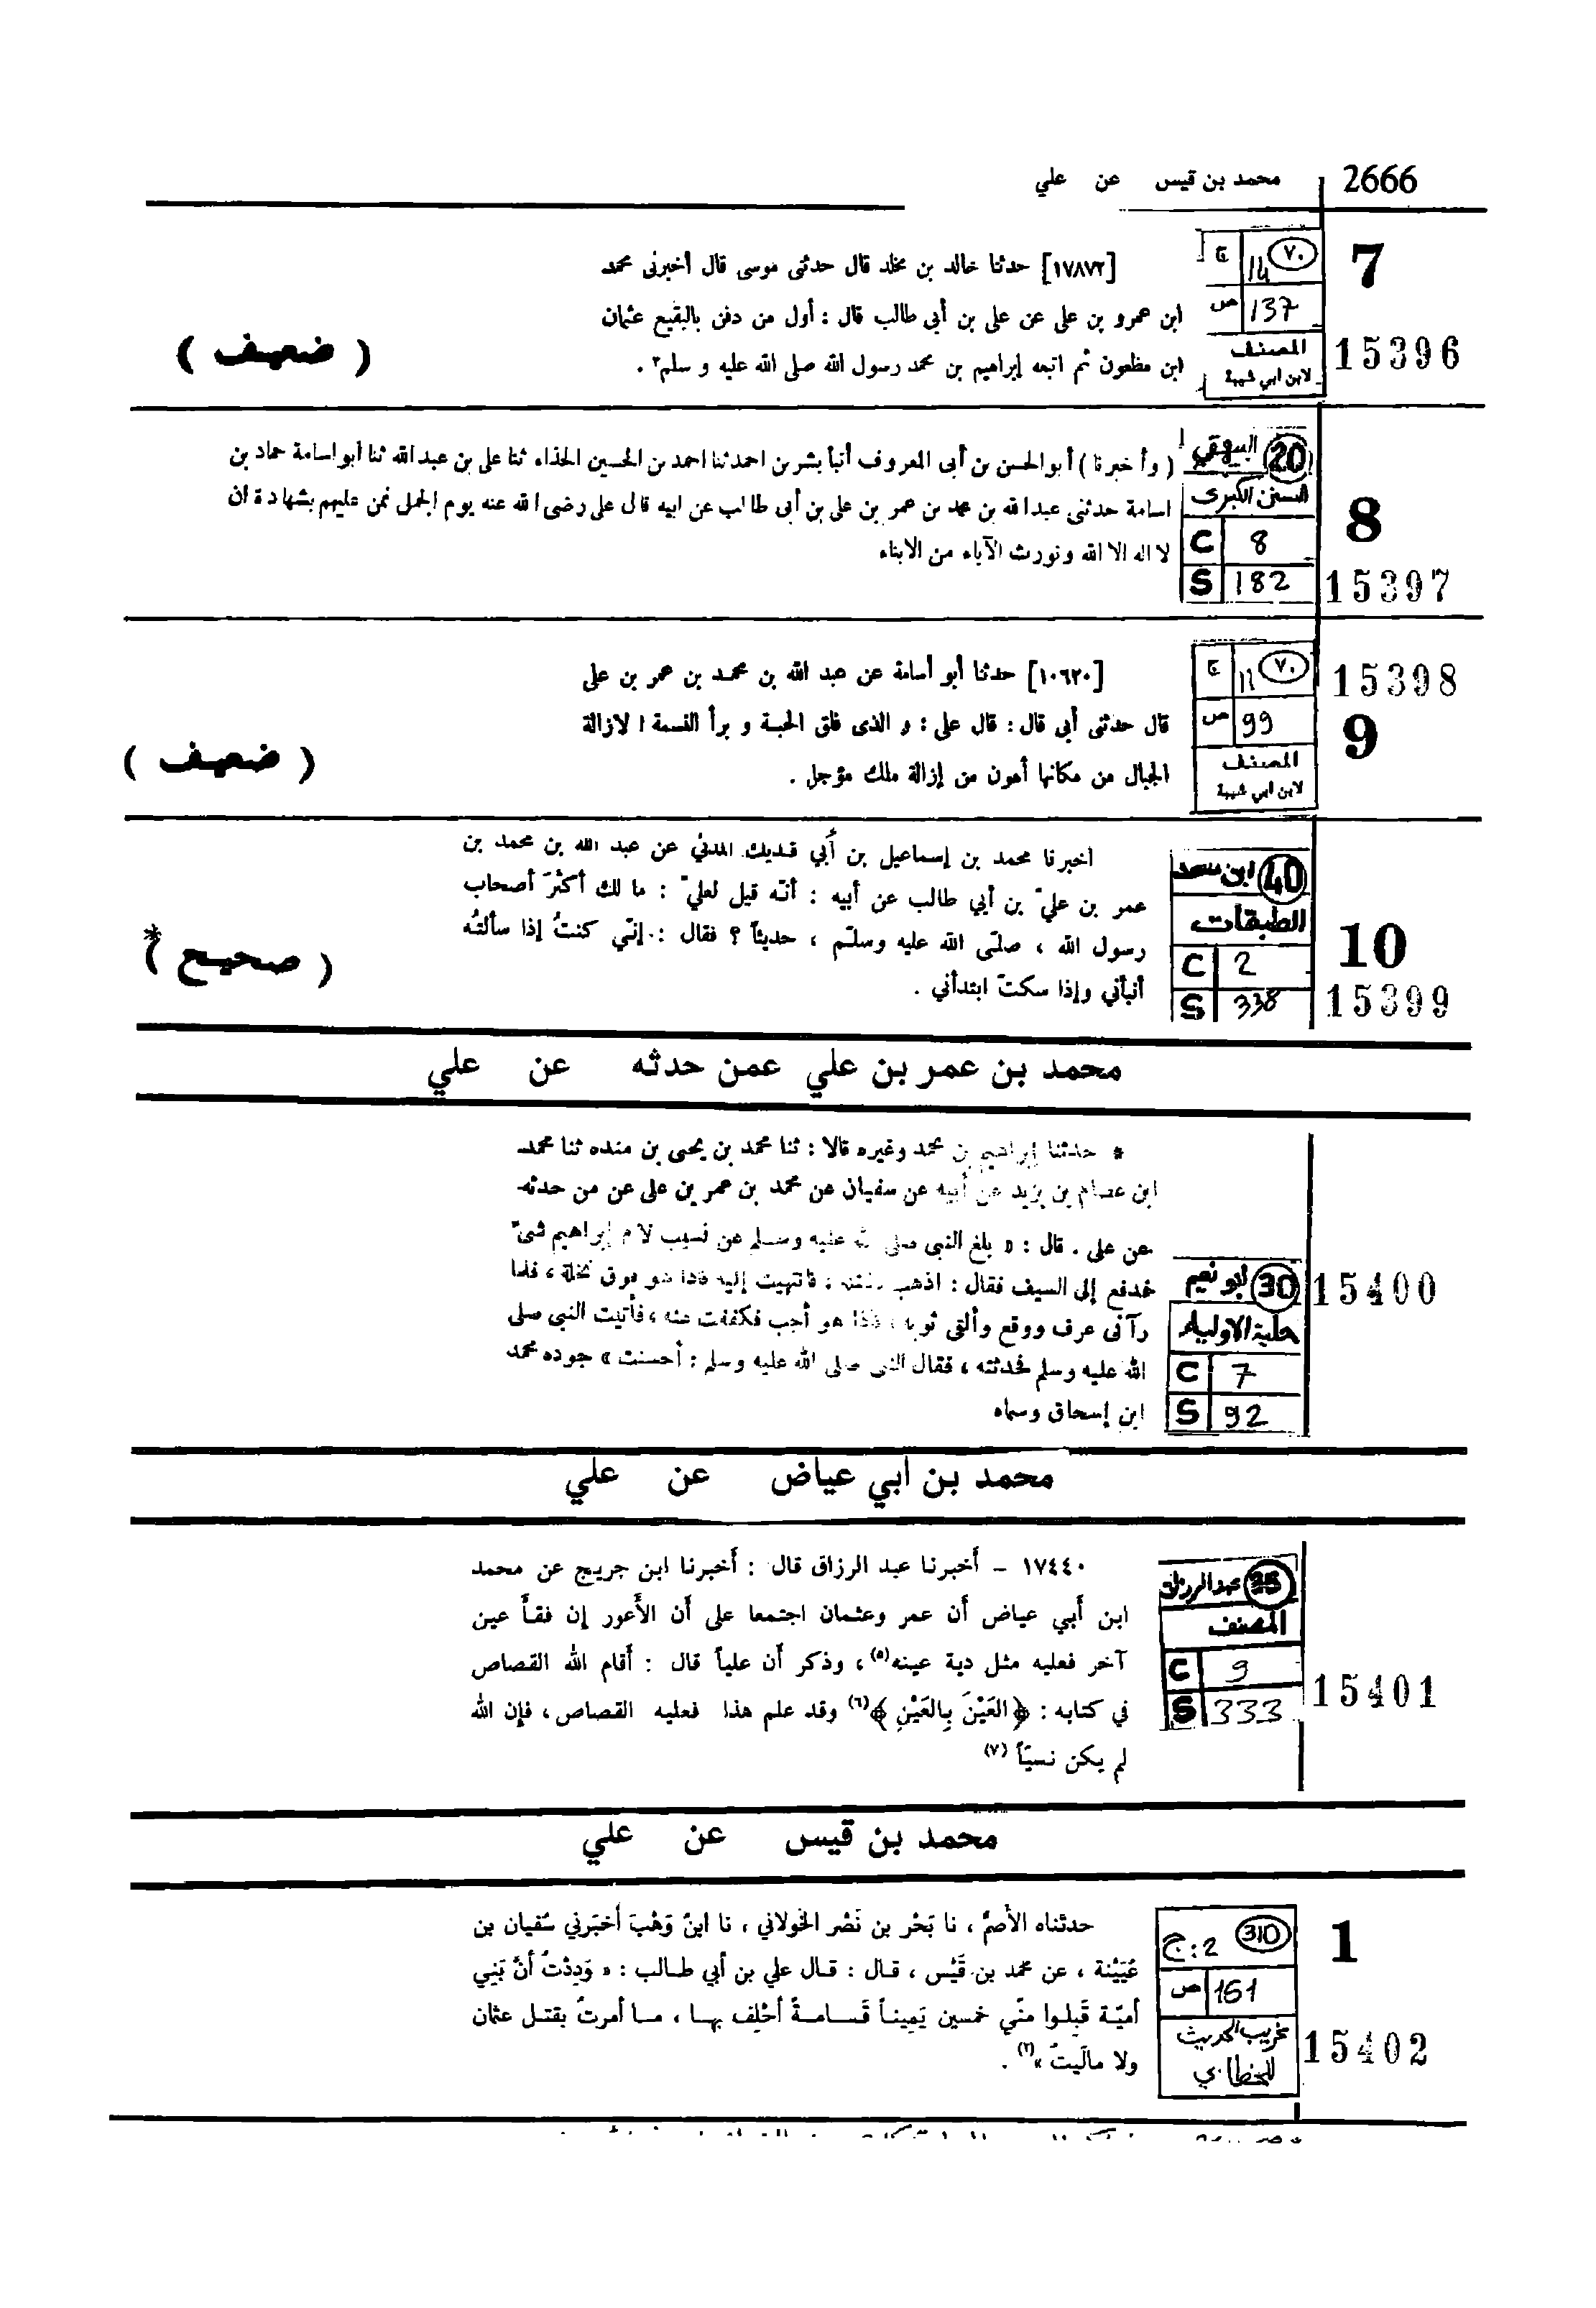 2666
محمد بن قيس عن علي
7
ج 14 ٧٠
ص 137
المصنف
لابن ابي شيبة
15396
[١٧٨٧٢] حدثنا خالد بن مخلد قال حدثنى موسى قال أخبرنى محمد
ابن عمرو بن على عن على بن أبى طالب قال : أول من دفن بالبقيع عثمان
ابن مظعون ثم اتبعه إبراهيم بن محمد رسول الله صلى الله عليه و سلم٢ .
( ضعيف )
8
20 البيهقي
السنن الكبرى
C 8
S 182
15397
( وأخبرنا ) أبو الحسن بن أبى المعروف أنبأ بشر بن احمد ثنا احمد بن الحسين الحذاء ثنا على بن عبد الله ثنا أبو اسامة حماد بن
اسامة حدثنى عبد الله بن محمد بن عمر بن على بن أبى طالب عن ابيه قال على رضى الله عنه يوم الجمل نمن عليهم بشهادة ان
لا اله الا الله ونورث الآباء من الابناء
15398
9
ج 11 ٧٠
ص 99
المصنف
لابن ابي شيبة
[١٠٦٢٠] حدثنا أبو أسامة عن عبد الله بن محمد بن عمر بن على
قال حدثنى أبى قال : قال على : و الذى فلق الحبة و برأ النسمة ! لازالة
الجبال من مكانها أهون من إزالة ملك مؤجل .
( ضعيف )
40 ابن سعد
الطبقات
C 2
S 338
10
15399
أخبرنا محمد بن إسماعيل بن أبي فديك المدني عن عبد الله بن محمد بن
عمر بن عليّ بن أبي طالب عن أبيه : أنّه قيل لعليّ : ما لك أكثرَ أصحاب
رسول الله ، صلّى الله عليه وسلّم ، حديثاً ؟ فقال : إنّي كنتُ إذا سألتُه
أنبأني وإذا سكتّ ابتدأني .
( صحيح )*
محمد بن عمر بن علي عمن حدثه عن علي
* حدثنا إبراهيم بن محمد وغيره قالا : ثنا محمد بن يحيى بن منده ثنا محمد
ابن عصام بن يزيد عن أبيه عن سفيان عن محمد بن عمر بن على عن من حدثه
عن على . قال : « بلغ النبى صلى الله عليه وسلم عن نسيب لام إبراهيم شىء
فدفع إلى السيف فقال : اذهب فاقتله ، فانتهيت إليه فاذا هو فوق نخلة ، فلما
رآنى عرف ووقع وألقى ثوبه ، فاذا هو أجب فكففت عنه ، فأتيت النبى صلى
الله عليه وسلم فحدثته ، فقال النبى صلى الله عليه وسلم : أحسنت » جوده محمد
ابن إسحاق وسماه
30 ابو نعيم
حلية الاولياء
C 7
S 92
15400
محمد بن أبي عياض عن علي
١٧٤٤٠ – أخبرنا عبد الرزاق قال : أخبرنا ابن جريج عن محمد
ابن أبي عياض أن عمر وعثمان اجتمعا على أن الأعور إن فقأ عين
آخر فعليه مثل دية عينه(٥) ، وذكر أن علياً قال : أقام الله القصاص
في كتابه : ﴿العَيْنَ بِالعَيْنِ﴾(٦) وقد علم هذا فعليه القصاص ، فإن الله
لم يكن نسيّاً (٧)
35 عبد الرزاق
المصنف
C 9
S 333
15401
محمد بن قيس عن علي
حدثناه الأصمّ ، نا بَحْر بن نَصْر الخولاني ، نا ابنُ وَهْبَ أخبَرني سُفيان بن
عُيَيْنة ، عن محمد بن قَيْس ، قال : قال علي بن أبي طالب : « وَدِدْتُ أنّ بَنِي
أميّة قَبِلوا منّي خمسين يَمِيناً قَسامةً أحْلِف بها ، ما أمرتُ بقتل عثمان
ولا مالَيتُ »(٢) .
310 ج: 2
ص 161
غريب الحديث
للخطابي
1
15402